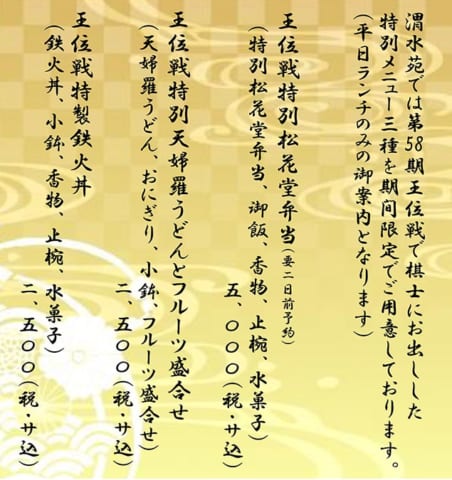 渭水苑では第58期王位戦で棋士にお出しした
特別メニュー三種を期間限定でご用意しております。
(平日ランチのみの御案内となります)
王位戦特別松花堂弁当(要二日前予約)
(特別松花堂弁当、御飯、香物、止椀、水菓子)
五、〇〇〇(税・サ込)
王位戦特別天婦羅うどんとフルーツ盛合せ
(天婦羅うどん、おにぎり、小鉢、フルーツ盛合せ)
二、五〇〇(税・サ込)
王位戦特製鉄火丼
(鉄火丼、小鉢、香物、止椀、水菓子)
二、五〇〇(税・サ込)